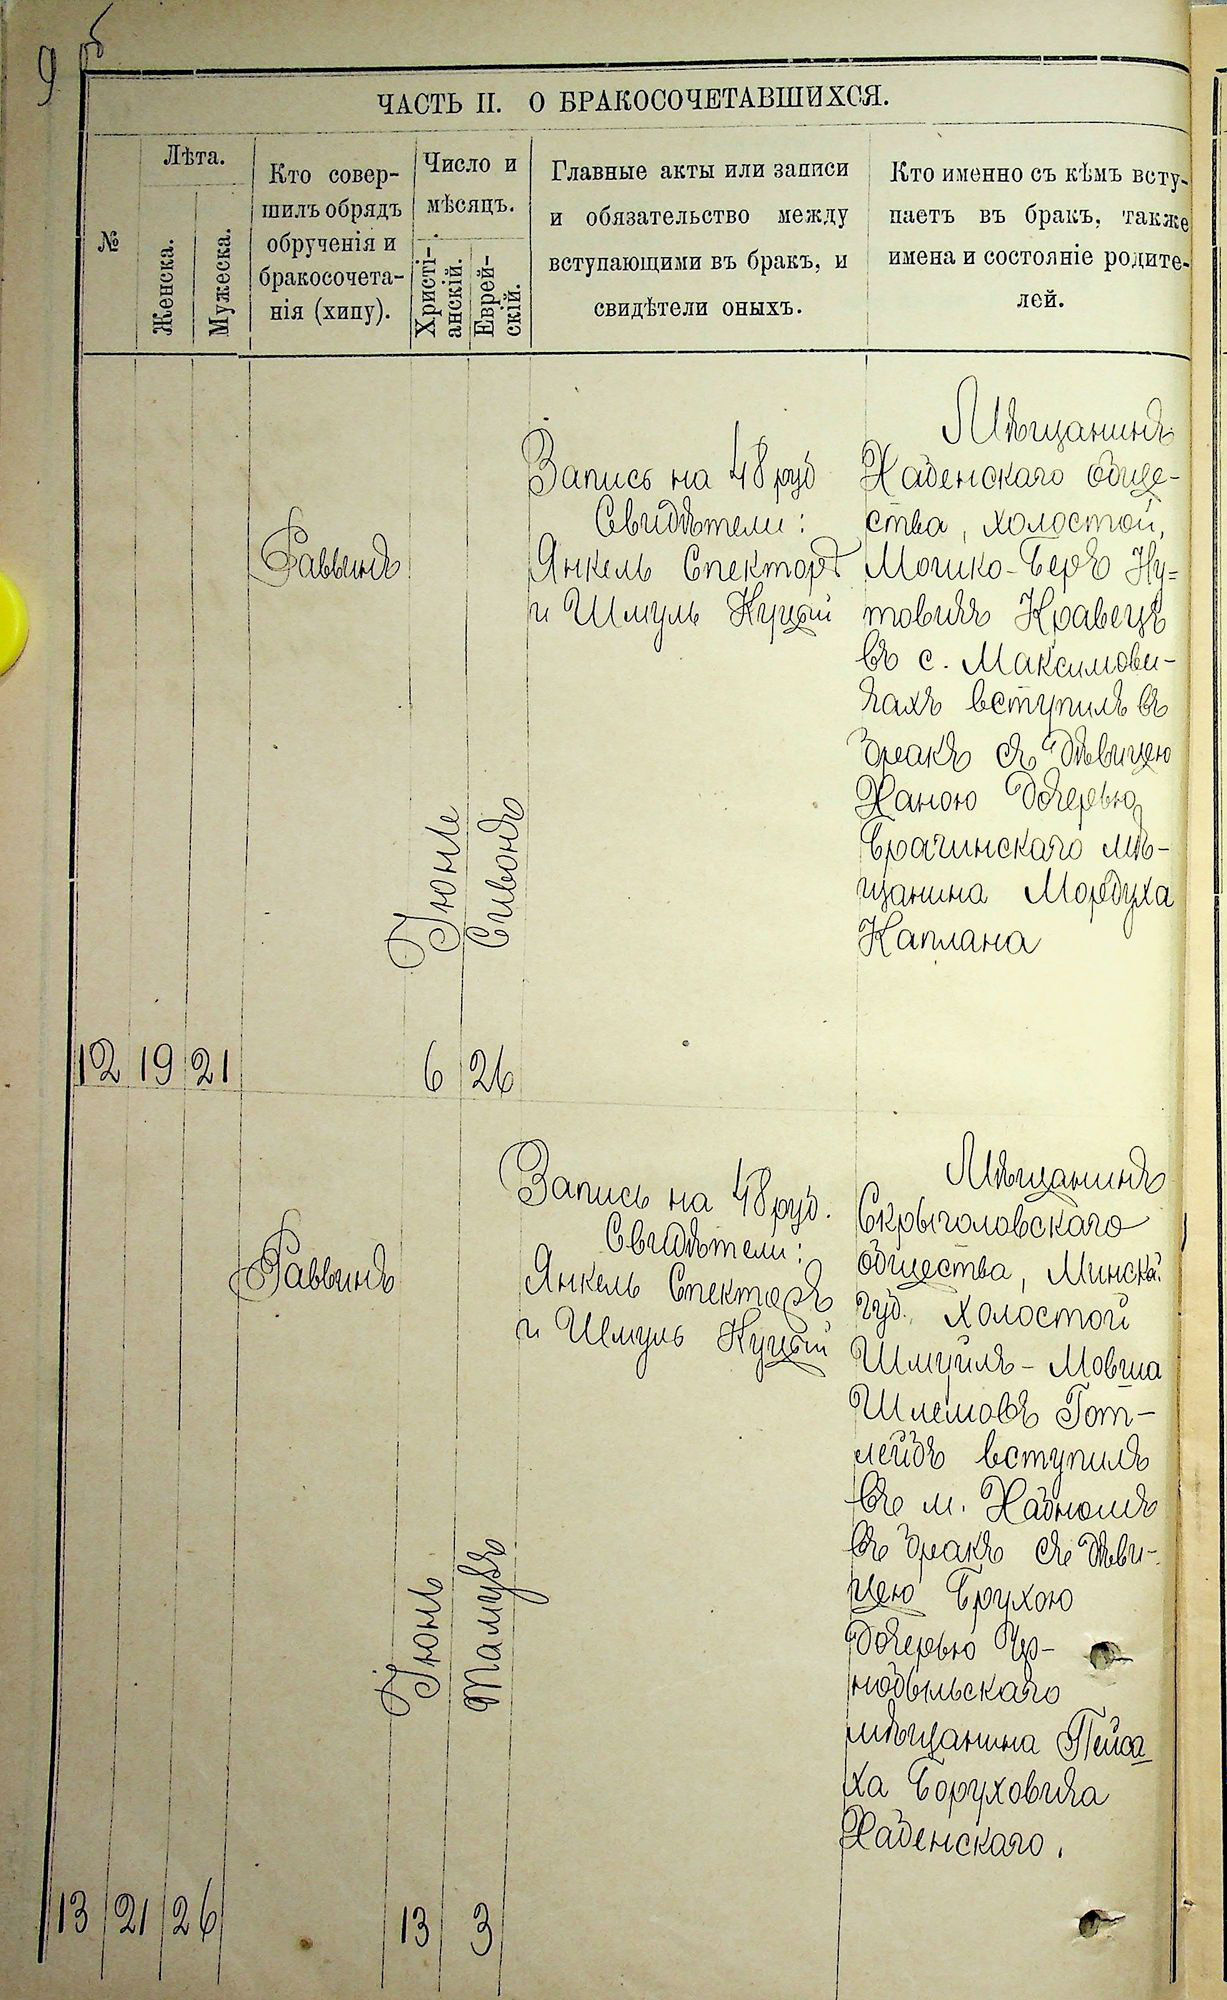 9 б
ЧАСТЬ II. О БРАКОСОЧЕТАВШИХСЯ.
№
Лѣта.
Женска.
Мужеска.
Кто совер-
шилъ обрядъ
обрученія и
бракосочета-
нія (хипу).
Число и
мѣсяцъ.
Христі-
анскій.
Еврей-
скій.
Главные акты или записи
и обязательство между
вступающими въ бракъ, и
свидѣтели оныхъ.
Кто именно съ кѣмъ всту-
паетъ въ бракъ, также
имена и состояніе родите-
лей.
12
19
21
Раввинъ
Іюнь
6
Сивонъ
26
Запись на 48 руб
Свидѣтели:
Янкель Спекторъ
и Шмуль Куцый
Мѣщанинъ
Хабенскаго обще-
ства, холостой,
Мошко-Беръ Ну-
товичъ Кравецъ
въ с. Максимови-
чахъ вступилъ въ
бракъ съ дѣвицею
Ханою дочерью
Брагинскаго мѣ-
щанина Мордуха
Каплана
13
21
26
Раввинъ
Іюнь
13
Тамузъ
3
Запись на 48 руб.
Свидѣтели:
Янкель Спекторъ
и Шмуль Куцый
Мѣщанинъ
Скрыголовскаго
общества, Минской
губ. холостой
Шмуйлъ-Мовша
Шлемовъ Гот-
лейбъ вступилъ
въ м. Хабномъ
въ бракъ съ дѣви-
цею Брухою
дочерью Чер-
нобыльскаго
мѣщанина Пейса-
ха Боруховича
Хабенскаго.